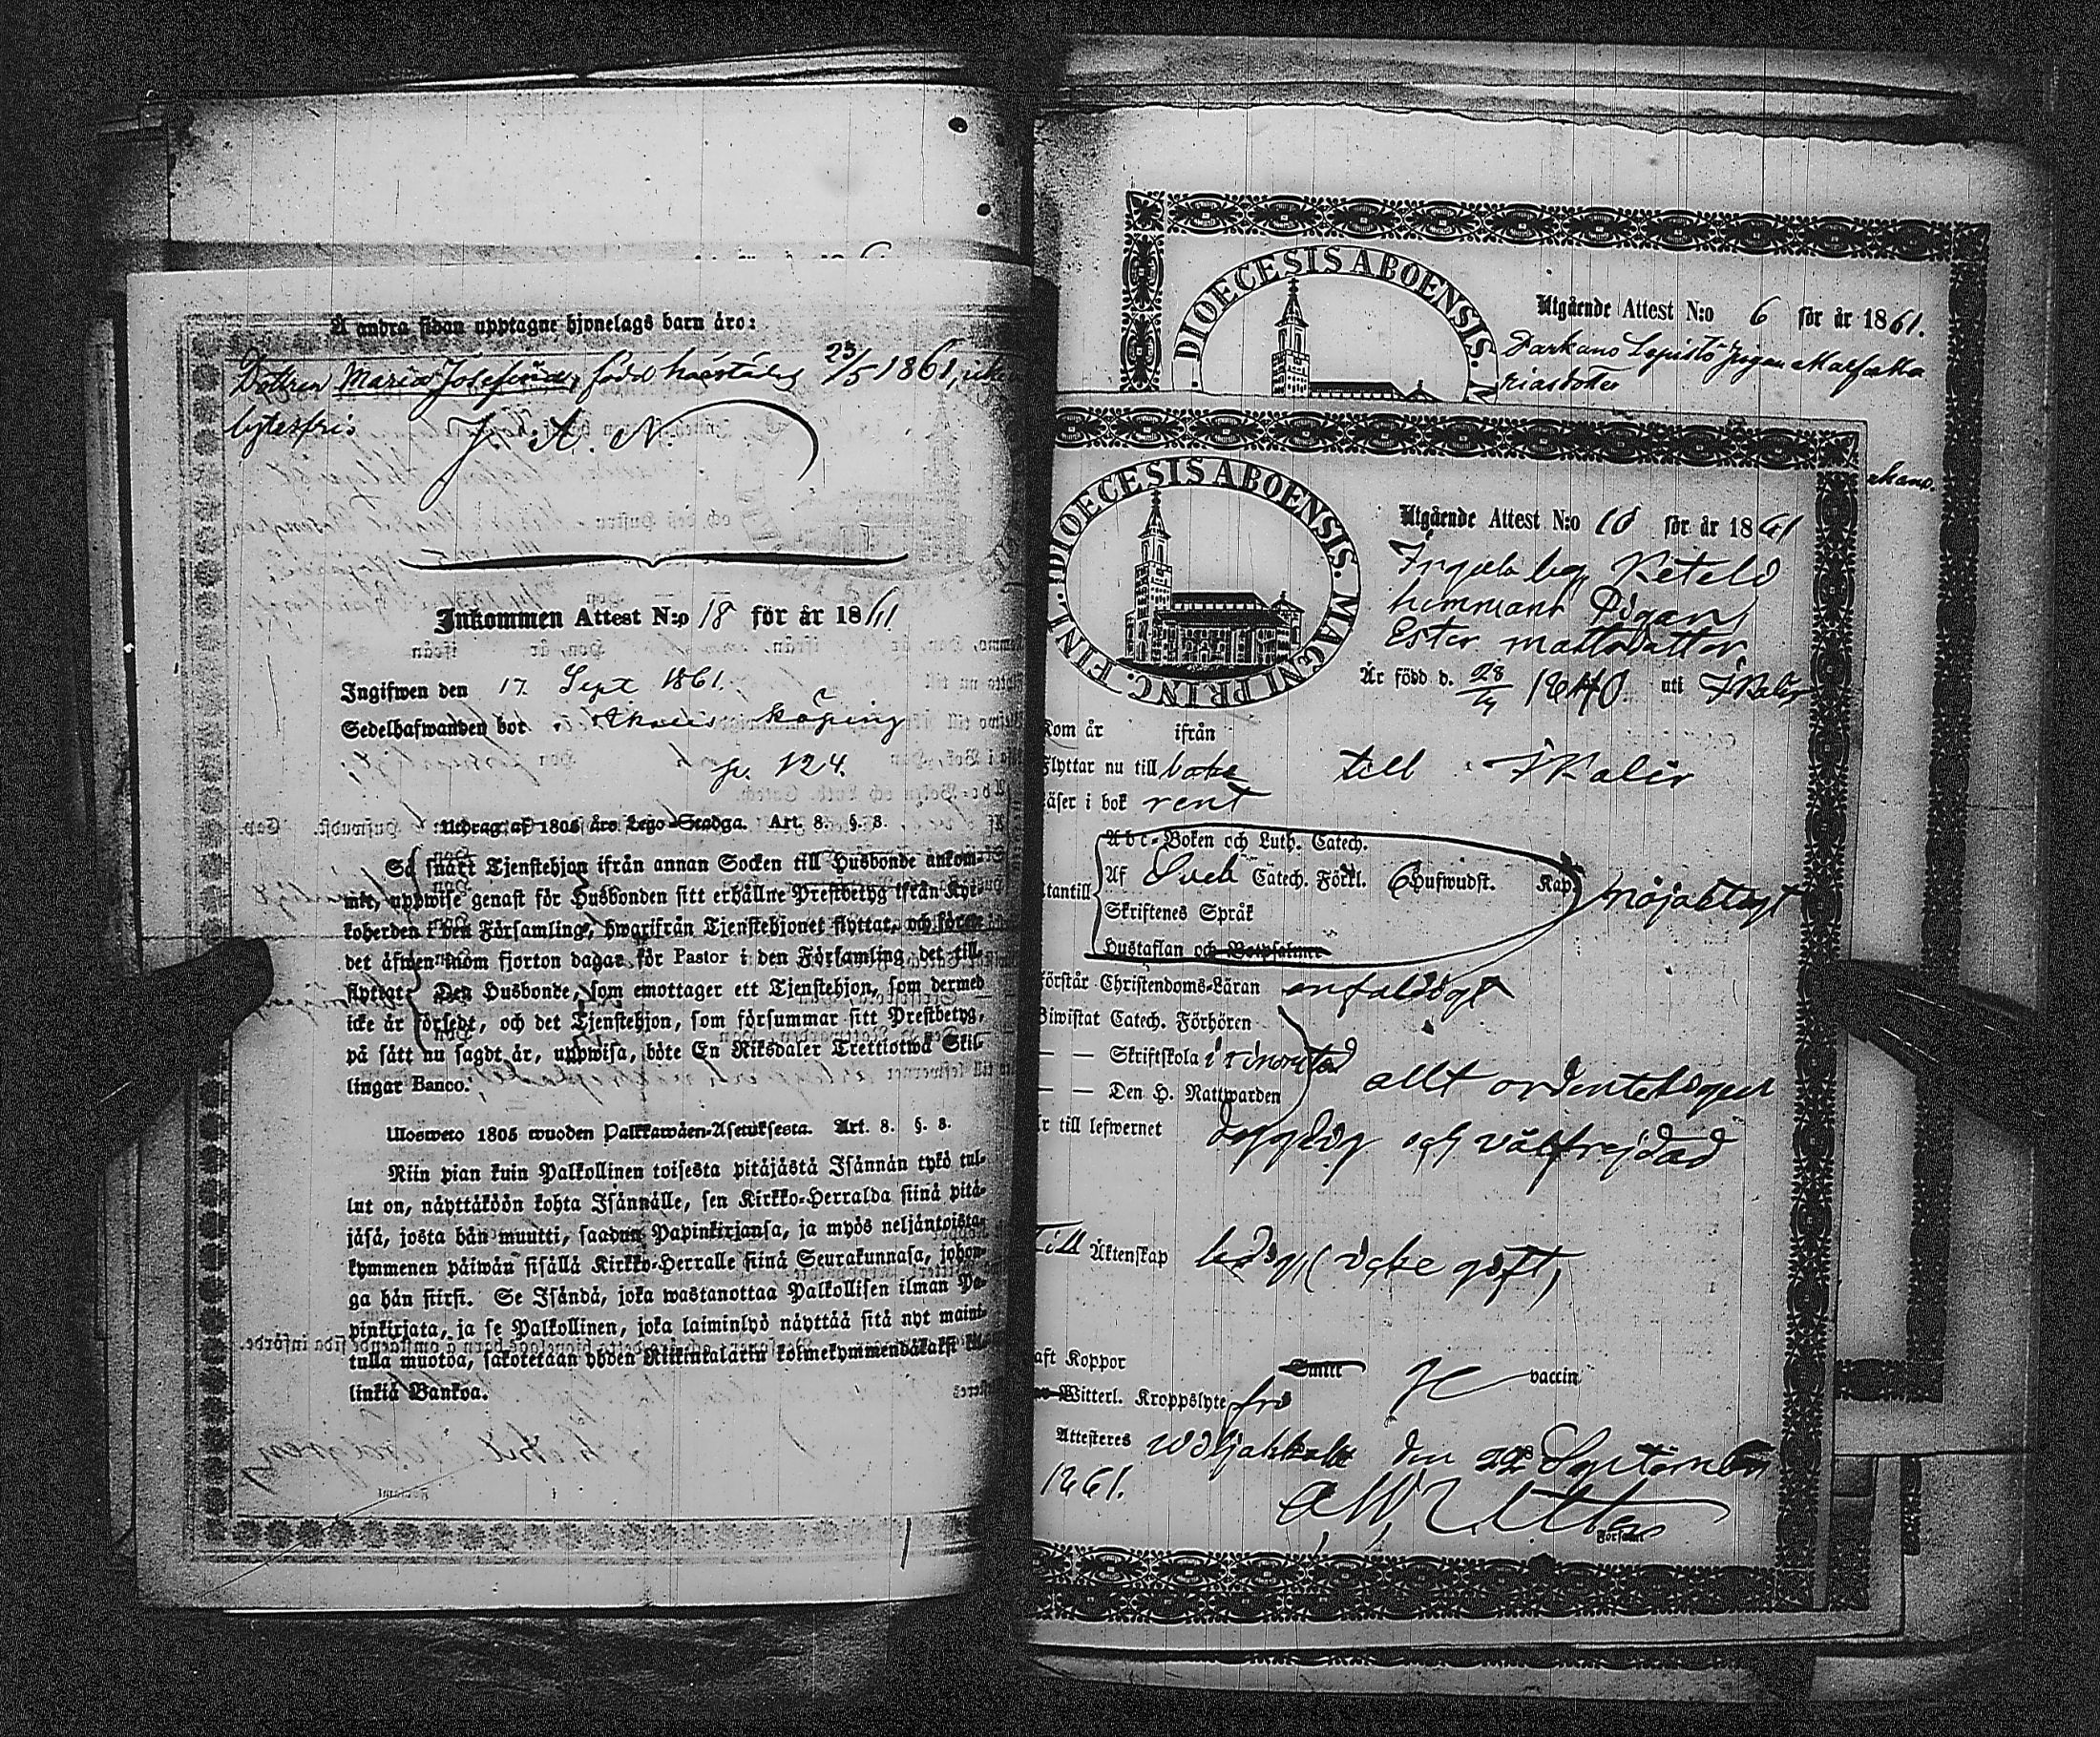 Å andra sidan upptagne hjonelags barn äro:
Dottren Maria Josefina, född härstädes 23/5 1861, icke
lytesfri
J. A. N.
Inkommen Attest N:o 18 för år 1861
Ingifwen den 17 Sept 1861.
Sedelhafwanden bor i köping
p. 124.
Utdrag af 1805 års Lego-Stadga. Art. 8. §. 8.
Så snart Tjenstehjon ifrån annan Socken till Husbonde ankom-
mit, uppwise genast för Husbonden sitt erhållne Prestbetyg ifrån Kyr-
koherden i den Församling, hwarifrån Tjenstehjonet flyttat, och före-
det äfwen inom fjorton dagar för Pastor i den Församling det till-
flyttat. Den Husbonde, som emottager ett Tjenstehjon, som dermed
icke är försedt, och det Tjenstehjon, som försummar sitt Prestbetyg,
på sätt nu sagdt är, uppwisa, böte En Riksdaler Trettiotwå Skil-
lingar Banco.
Ulosweto 1805 wuoden Palkkawäen-Asetuksesta. Art. 8. §. 8.
Niin pian kuin Palkollinen toisesta pitäjästä Isännän tykö tul-
lut on, näyttäköön kohta Isännälle, sen Kirkko-Herralda siinä pitä-
jäsä, josta hän muutti, saadun Papinkirjansa, ja myös neljäntoista-
kymmenen päiwän sisällä Kirkko-Herralle siinä Seurakunnasa, johon-
ga hän siirsi. Se Isändä, joka wastanottaa Palkollisen ilman Pa-
pinkirjata, ja se Palkollinen, joka laiminlyö näyttää sitä nyt maini-
tulla muotoa, sakotetaan yhden Riikintalarin kolmekymmendäkaksi kil-
linkiä Bankoa.
DIOECESIS ABOENSIS. M
Utgående Attest N:o 6 för år 1861.
Parkano Lepistö Pigan
riasdotter
DIOECESIS ABOENSIS. MAGNI PRINC. FINL.
Utgående Attest N:o 10 för år 1861
hemmans Pigan
Ester mattsdotter
Är född d. 28/4 1840 uti Ikalis
Kom år ifrån
Flyttar nu till bake till Ikalis
Läser i bok rent
Abc-Boken och Luth. Catech.
Af Sveb Catech. Förkl. 6 Hufwudst. Kap. nöjaktigt
Utantill
Skriftenes Språk
Hustaflan och Botpsalmer
Förstår Christendoms-Läran enfaldigt
Biwistat Catech. Förhören
— — Skriftskola
— — Den H. Nattwarden allt ordenteligen
Är till lefwernet dygdig och välfrejdad
Till Äktenskap ledig, (icke gift)
Haft Koppor Smitt vaccin
Witterl. Kroppslyte fri
Attesteres Wiljakkala den 22 September
1861.
Församl